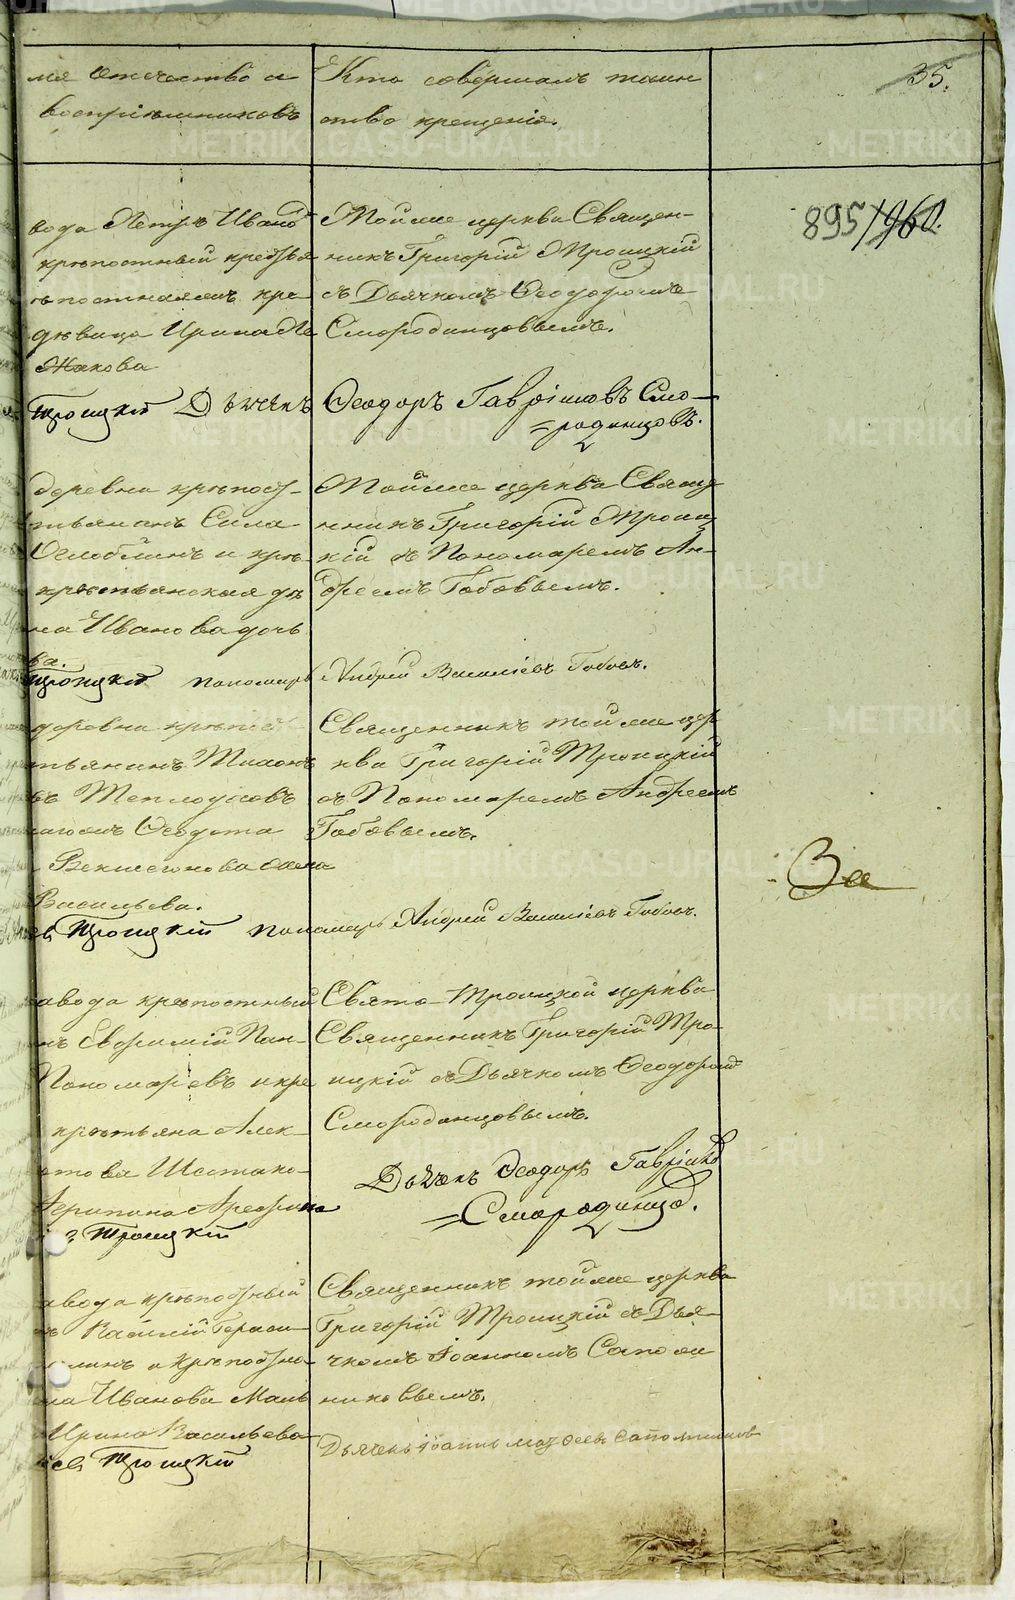 35.
мя Отчество и
воспріемниковъ
Кто совершалъ таин
ство крещенія.
895/960.
вода Петръ Ивано
крѣпостный крестья
постнаго кре
дѣвица Ирина
Жакова
Тойже церкви Священ-
никъ Григорій Троицкій
съ Дьячкомъ Ѳеодоромъ
Смородинцовымъ.
Троицкій Дьячекъ Ѳеодоръ Гавріиловъ Смо-
=родинцовъ.
деревни крѣпост-
тьянинъ Сила
Оглоблинъ и крѣ-
крестьянская дѣ
на Иванова дочь
ва.
Тойже церкви Свяще
нникъ Григорій Троиц
кій съ Пономаремъ Ан-
дреемъ Бабовымъ.
Троицкій пономарь Андрей Василіевъ Бабовъ.
деревни крѣпост
тьянинъ Тихонъ
въ Теплоуховъ
Ѳедота
Векшегонова
Васильева.
Священникъ тойже цер
кви Григорій Троицкій
съ Пономаремъ Андреемъ
Бабовымъ.
За
Троицкій пономарь Андрей Василіевъ Бабовъ.
авода крѣпостный
нъ Евфимій Пан-
Пономаревъ и кре
крестьяна Алек-
това Шестако-
Агрипина Арефина
Троицкій
Свято-Троицкой церкви
Священникъ Григорій Тро-
ицкій съ Дьячкомъ Ѳеодоромъ
Смородинцовымъ.
Дьячекъ Ѳеодоръ Гавріило
=Смородинцо.
авода крѣпостный
Василій Гераси
линъ и Крѣпостна-
на Иванова Маль
Ирина Васильева
Троицкій
Священникъ тойже церкви
Григорій Троицкій съ Дья-
чкомъ Іоанномъ Сапож
никовымъ.
Дьячекъ Іоаннъ Матѳеевъ Сапожниковъ